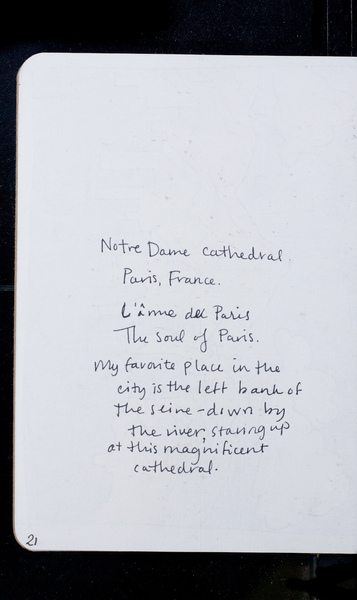 Notre Dame Cathedral.
Paris, France.
L'âme de Paris
The soul of Paris.
My favorite place in the
city is the left bank of
the seine - down by
the river, staring up
at this magnificent
cathedral.
21